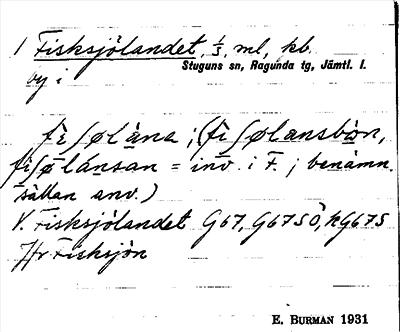 1 Fisksjölandet, 1/3 ml, kb.
Stuguns sn, Ragunda tg, Jämtl. l.
by i
fìʃøĺàna; (fìʃølansbòn,
fiʃølánsan = inv. i F.; benämn.
sällan anv.)
V. Fisksjölandet G67, G67SÖ, hG67S
Jfr Fisksjön
E. BURMAN 1931